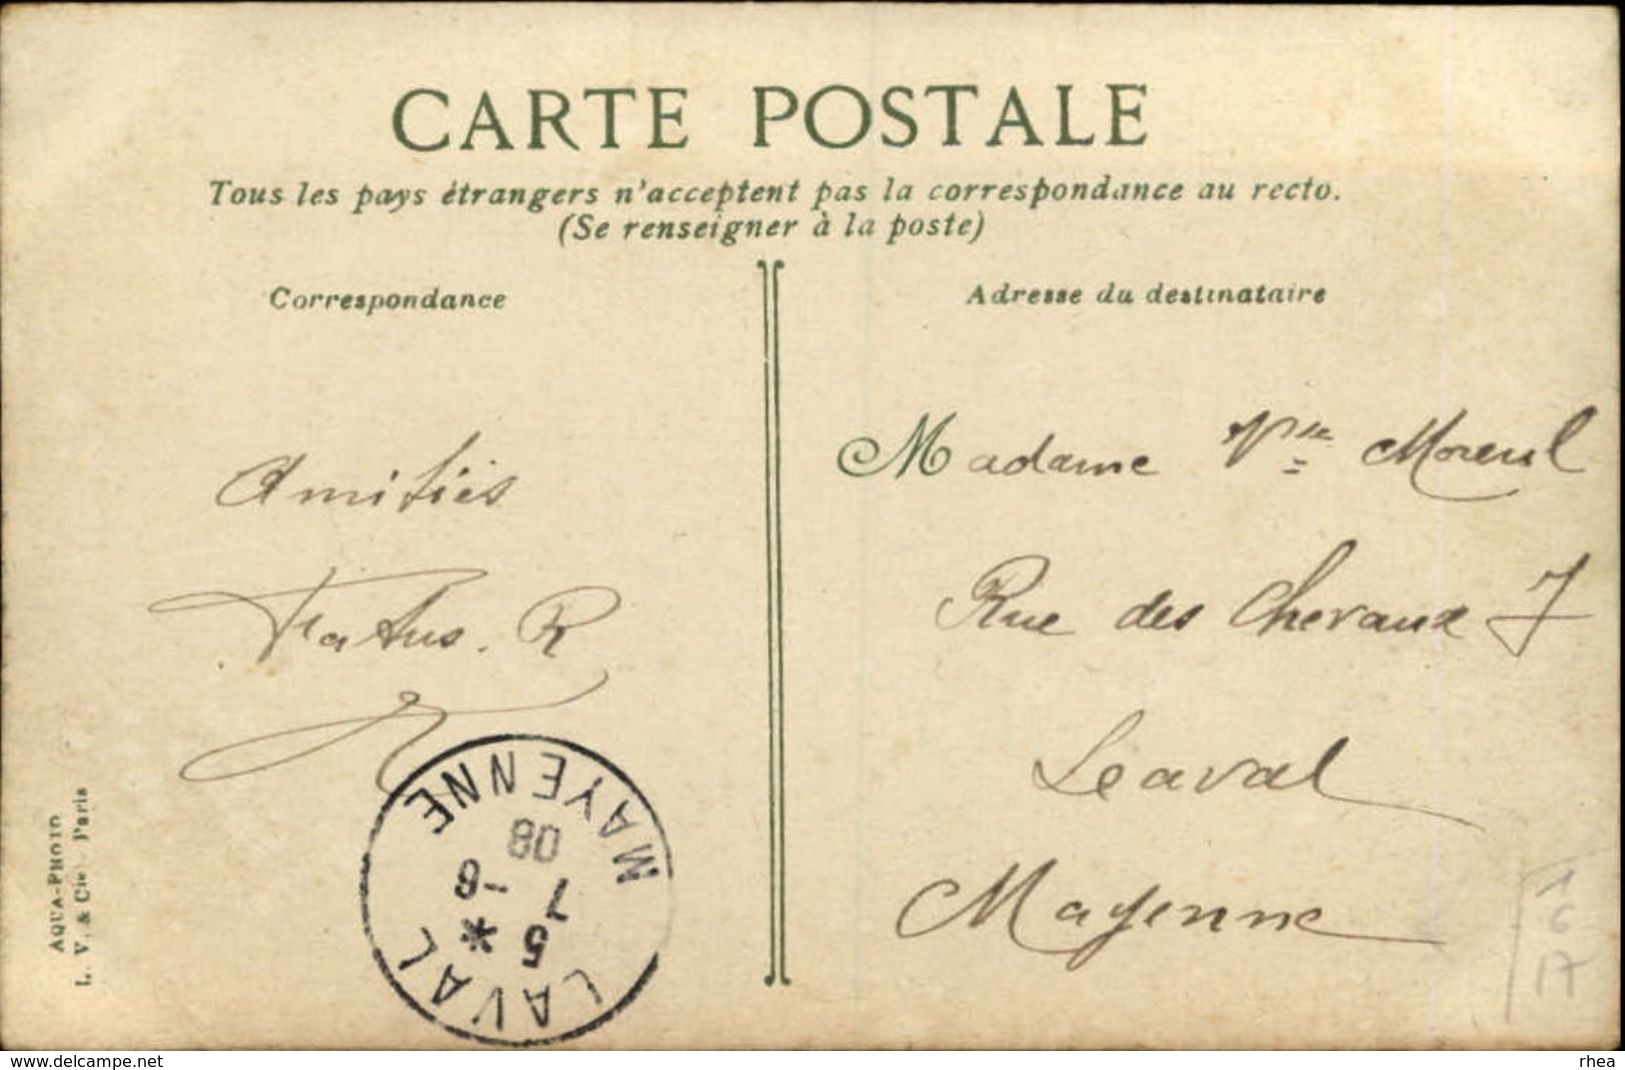 CARTE POSTALE
Tous les pays étrangers n'acceptent pas la correspondance au recto.
(Se renseigner à la poste)
Correspondance
Adresse du destinataire
Amitiés
R
Madame Vve Moreul
Rue des Chevaux 7
Laval
Mayenne
LAVAL
MAYENNE
5
7 -8
08
AQUA-PHOTO
L. V. & Cie. Paris
1
6
17
www.delcampe.net
rhea